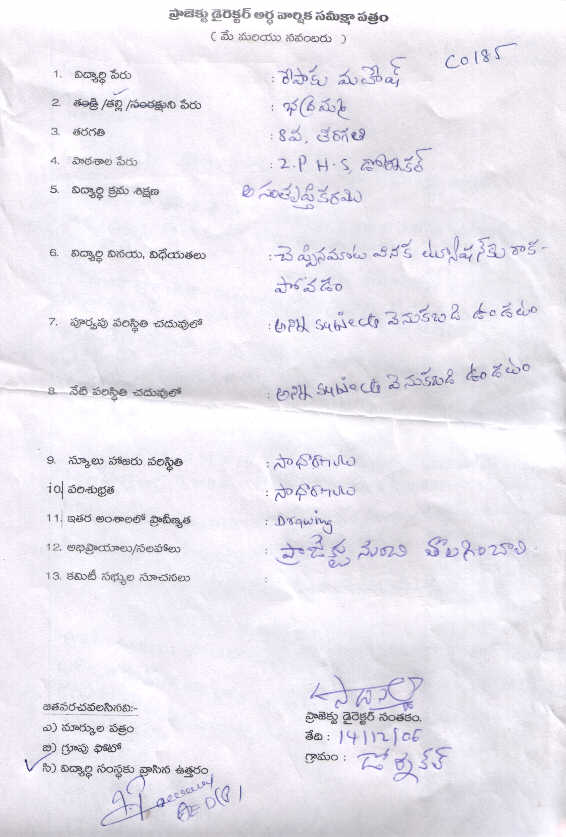 ప్రాజెక్టు డైరెక్టర్ అర్ధ వార్షిక సమీక్షా పత్రం
( మే మరియు నవంబరు )
C0185
1. విద్యార్థి పేరు : రేపాకు మహేష్
2. తండ్రి /తల్లి /సంరక్షుని పేరు :
3. తరగతి : 8వ, తరగతి
4. పాఠశాల పేరు : Z.P H.S, డోర్నకల్
5. విద్యార్థి క్రమ శిక్షణ అసంతృప్తికరము
6. విద్యార్థి వినయ, విధేయతలు : చెప్పినమాట వినక ట్యూషన్‌కు రాక-
పోవడం
7. పూర్వపు పరిస్థితి చదువులో : అన్ని subjects వెనుకబడి ఉండటం
8. నేటి పరిస్థితి చదువులో : అన్ని subjects వెనుకబడి ఉండటం
9. స్కూలు హాజరు పరిస్థితి : సాధారణం
10. పరిశుభ్రత : సాధారణం
11. ఇతర అంశాలలో ప్రావీణ్యత : Drawing
12. అభిప్రాయాలు/సలహాలు : ప్రాజెక్టు నుంచి తొలగించాలి.
13. కమిటీ సభ్యుల సూచనలు :
జతపరచవలసినవి:-
ఎ) మార్కుల పత్రం
బి) గ్రూపు ఫోటో
సి) విద్యార్థి సంస్థకు వ్రాసిన ఉత్తరం
ప్రాజెక్టు డైరెక్టర్ సంతకం.
తేది : 14/12/06
గ్రామం : డోర్నకల్